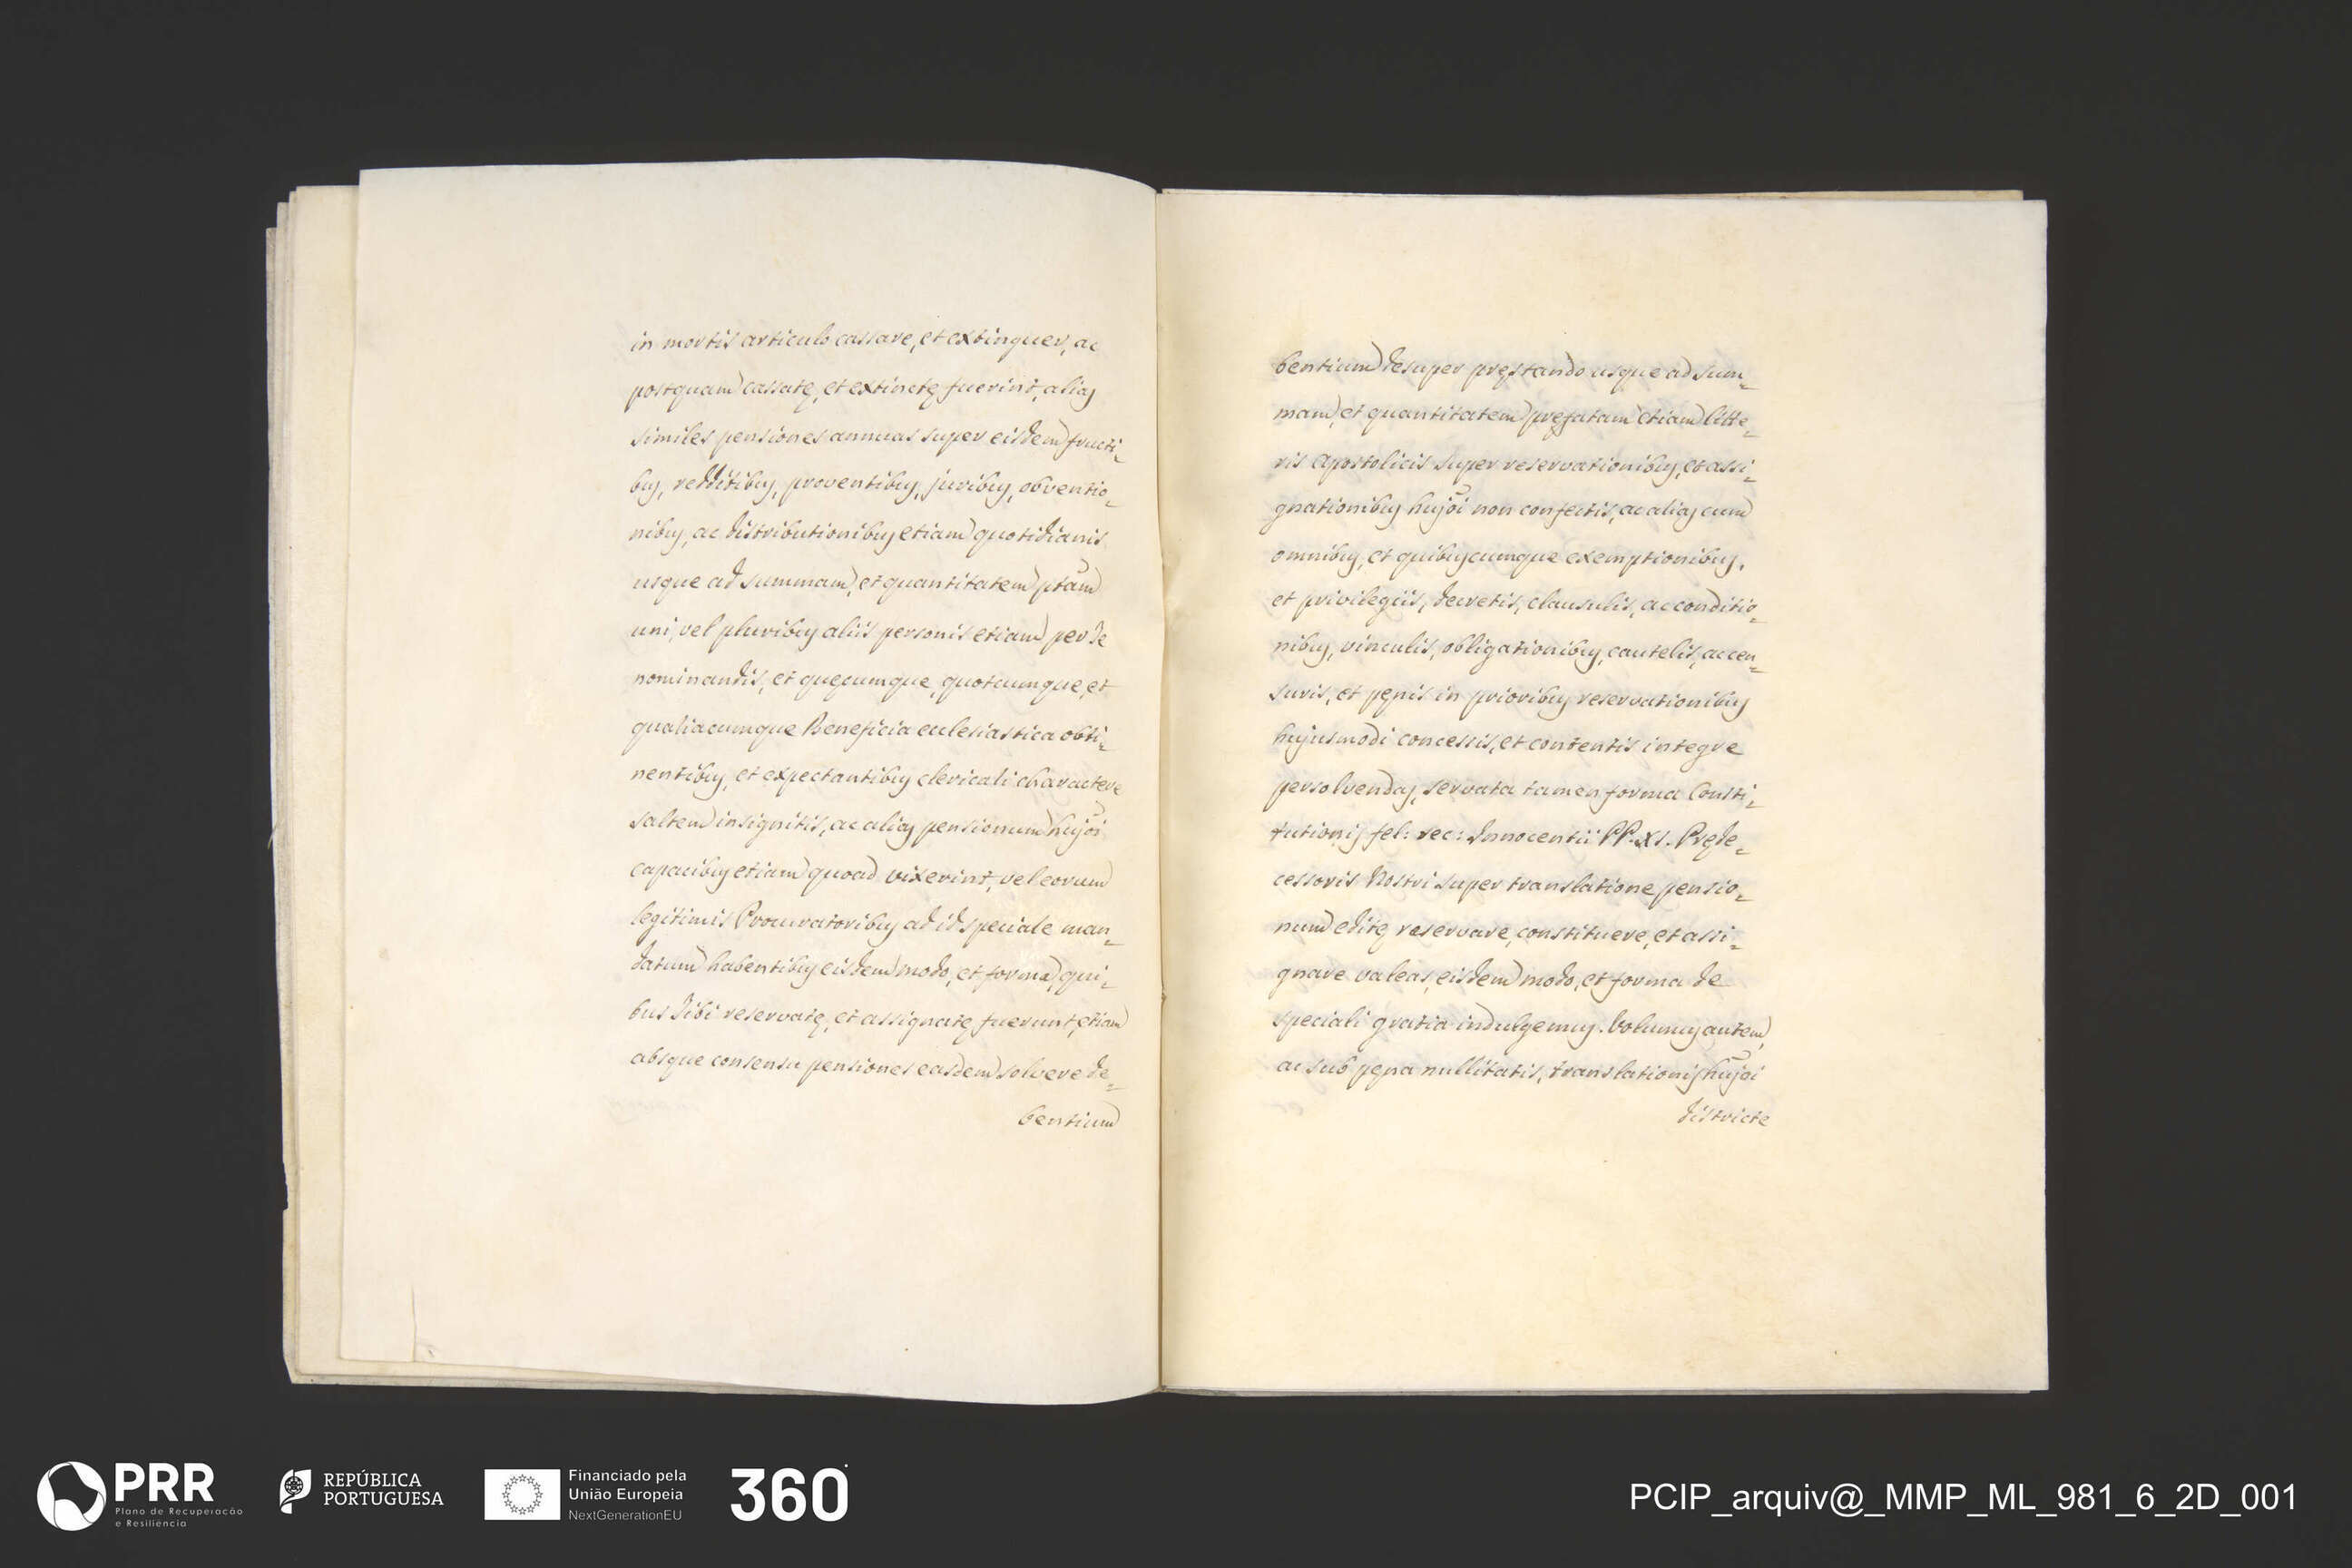 in mortis articulo cassare, et extinguer, ac
postquam cassatę, et extinctę fuerint, alias
similes pensiones annuas super eisdem fructi=
bus, redditibus, proventibus, juribus, obventio=
nibus, ac distributionibus etiam quotidianis
usque ad summam, et quantitatem ptam
uni, vel pluribus aliis personis etiam per te
nominandis, et quęcumque, quotcumque, et
qualiacumque Beneficia ecclesiastica obti=
nentibus, et expectantibus clericali charactere
saltem insignitis, ac alias pensionum hujōi
capacibus etiam quoad vixerint, vel eorum
legitimis Procuratoribus ad id speciale man=
datum habentibus eisdem modo, et forma, qui=
bus tibi reservatę, et assignatę fuerunt, etiam
absque consensu pensiones easdem solvere de=
bentium
bentium desuper pręstando usque ad sum=
mam, et quantitatem pręfatam etiam litte=
ris Apostolicis super reservationibus, et assi=
gnationibus hujōi non confectis, ac alias cum
omnibus, et quibuscumque exemptionibus,
et privilegiis, decretis, clausulis, ac conditio=
nibus, vinculis, obligationibus, cautelis, ac cen=
suris, et pęnis in prioribus reservationibus
hujusmodi concessis, et contentis integre
persolvendas, servata tamen forma Consti=
tutionis fel: rec: Innocentii PP. XI. Pręde=
cessoris Nostri super translatione pensio=
num editę reservare, constituere, et assi=
gnare valeas, eisdem modo, et forma de
speciali gratia indulgemus. Volumus autem,
ac sub pęna nullitatis, translationis hujōi
districte
PRR
Plano de Recuperação
e Resiliência
REPÚBLICA
PORTUGUESA
Financiado pela
União Europeia
NextGenerationEU
360
PCIP_arquiv@_MMP_ML_981_6_2D_001